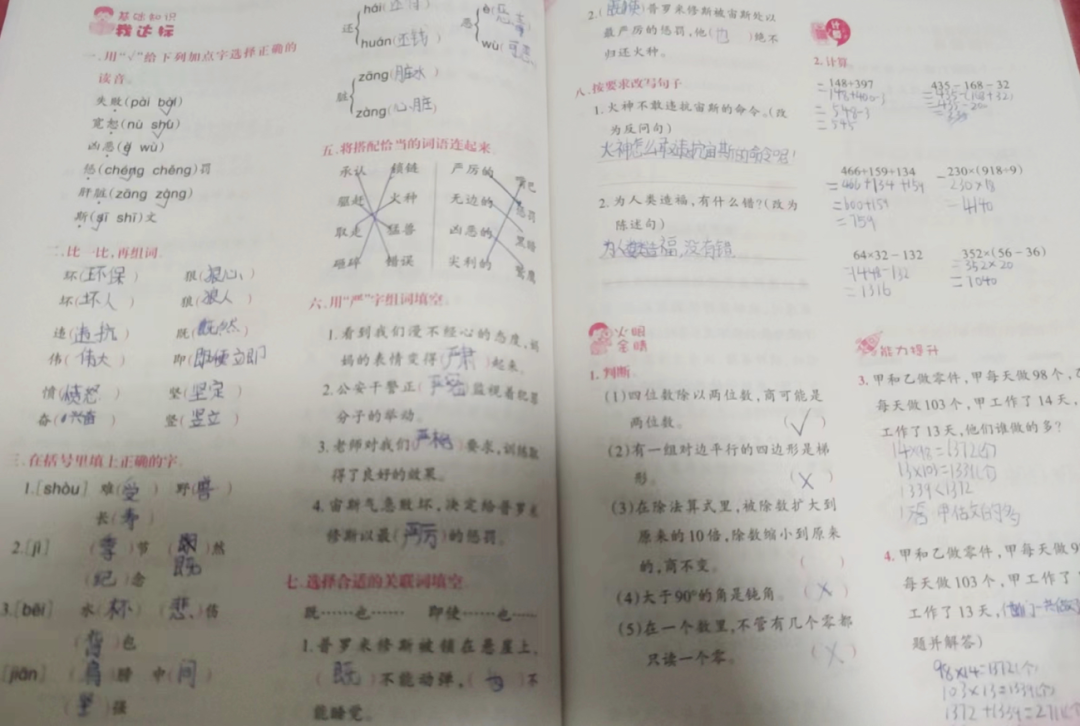 基础知识
我达标
一.用“√”给下列加点字选择正确的
读音.
失败(pài bài)
宽恕(nù shù)
凶恶(è wù)
惩(chéng chěng)罚
肝脏(zāng zàng)
斯(sī shī)文
二.比一比,再组词.
环(环保) 狠(狠心)
坏(坏人) 狼(狼人)
违(违抗) 既(既然)
伟(伟大) 即(即使立即)
愤(愤怒) 坚(坚定)
奋(兴奋) 竖(竖立)
三.在括号里填上正确的字.
1.[shòu] 难(受) 野(兽)
长(寿)
2.[jì] (季)节 (既)然
既
(纪)念
3.[bēi] 水(杯) (悲)伤
(背)包
[jiān] (肩)膀 中(间)
(坚)强
还
hái(
huán(还钱)
脏
zāng(脏水)
zàng(心脏)
恶
è(恶毒)
wù(可恶)
五.将搭配恰当的词语连起来.
承认 锁链 严厉的 嘴巴
驱赶 火种 无边的 惩罚
取走 猛兽 凶恶的 黑暗
砸碎 错误 尖利的 鹫鹰
六.用“严”字组词填空.
1.看到我们漫不经心的态度,妈
妈的表情变得(严肃)起来.
2.公安干警正(严密)监视着犯罪
分子的举动.
3.老师对我们(严格)要求,训练取
得了良好的效果.
4.宙斯气急败坏,决定给普罗米
修斯以最(严厉)的惩罚.
七.选择合适的关联词填空.
既……也…… 即使……也……
1.普罗米修斯被锁在悬崖上,
(既)不能动弹,(也)不
能睡觉.
2.(即使)普罗米修斯被宙斯处以
最严厉的惩罚,他(也)绝不
归还火种.
八.按要求改写句子
1.火神不敢违抗宙斯的命令.(改
为反问句)
火神怎么敢违抗宙斯的命令呢!
2.为人类造福,有什么错?(改为
陈述句)
为人类造福,没有错
火眼
金睛
1.判断.
(1)四位数除以两位数,商可能是
两位数。 (√)
(2)有一组对边平行的四边形是梯
形。 (×)
(3)在除法算式里,被除数扩大到
原来的10倍,除数缩小到原来
的,商不变。 ( )
(4)大于90°的角是钝角。 (×)
(5)在一个数里,不管有几个零都
只读一个零。 (×)
计算
2.计算.
148+397 435-168-32
=148+400-3 =435-(168+32)
=548-3 =435-20
=545
466+159+134 230×(918÷9)
=466+134+159 230×18
=600+159 =4140
=759
64×32-132 352×(56-36)
=1448-132 =352×20
=1316 =1040
能力提升
3.甲和乙做零件,甲每天做98个,乙
每天做103个,甲工作了14天,
工作了13天,他们谁做的多?
14×98=1372(个)
13×103=1339(个)
1339<1372
答:甲
4.甲和乙做零件,甲每天做9
每天做103个,甲工作了
工作了13天,(他们一共做
题并解答)
98×14=1372(个)
103×13=1339(个)
1372+1339=2711(个